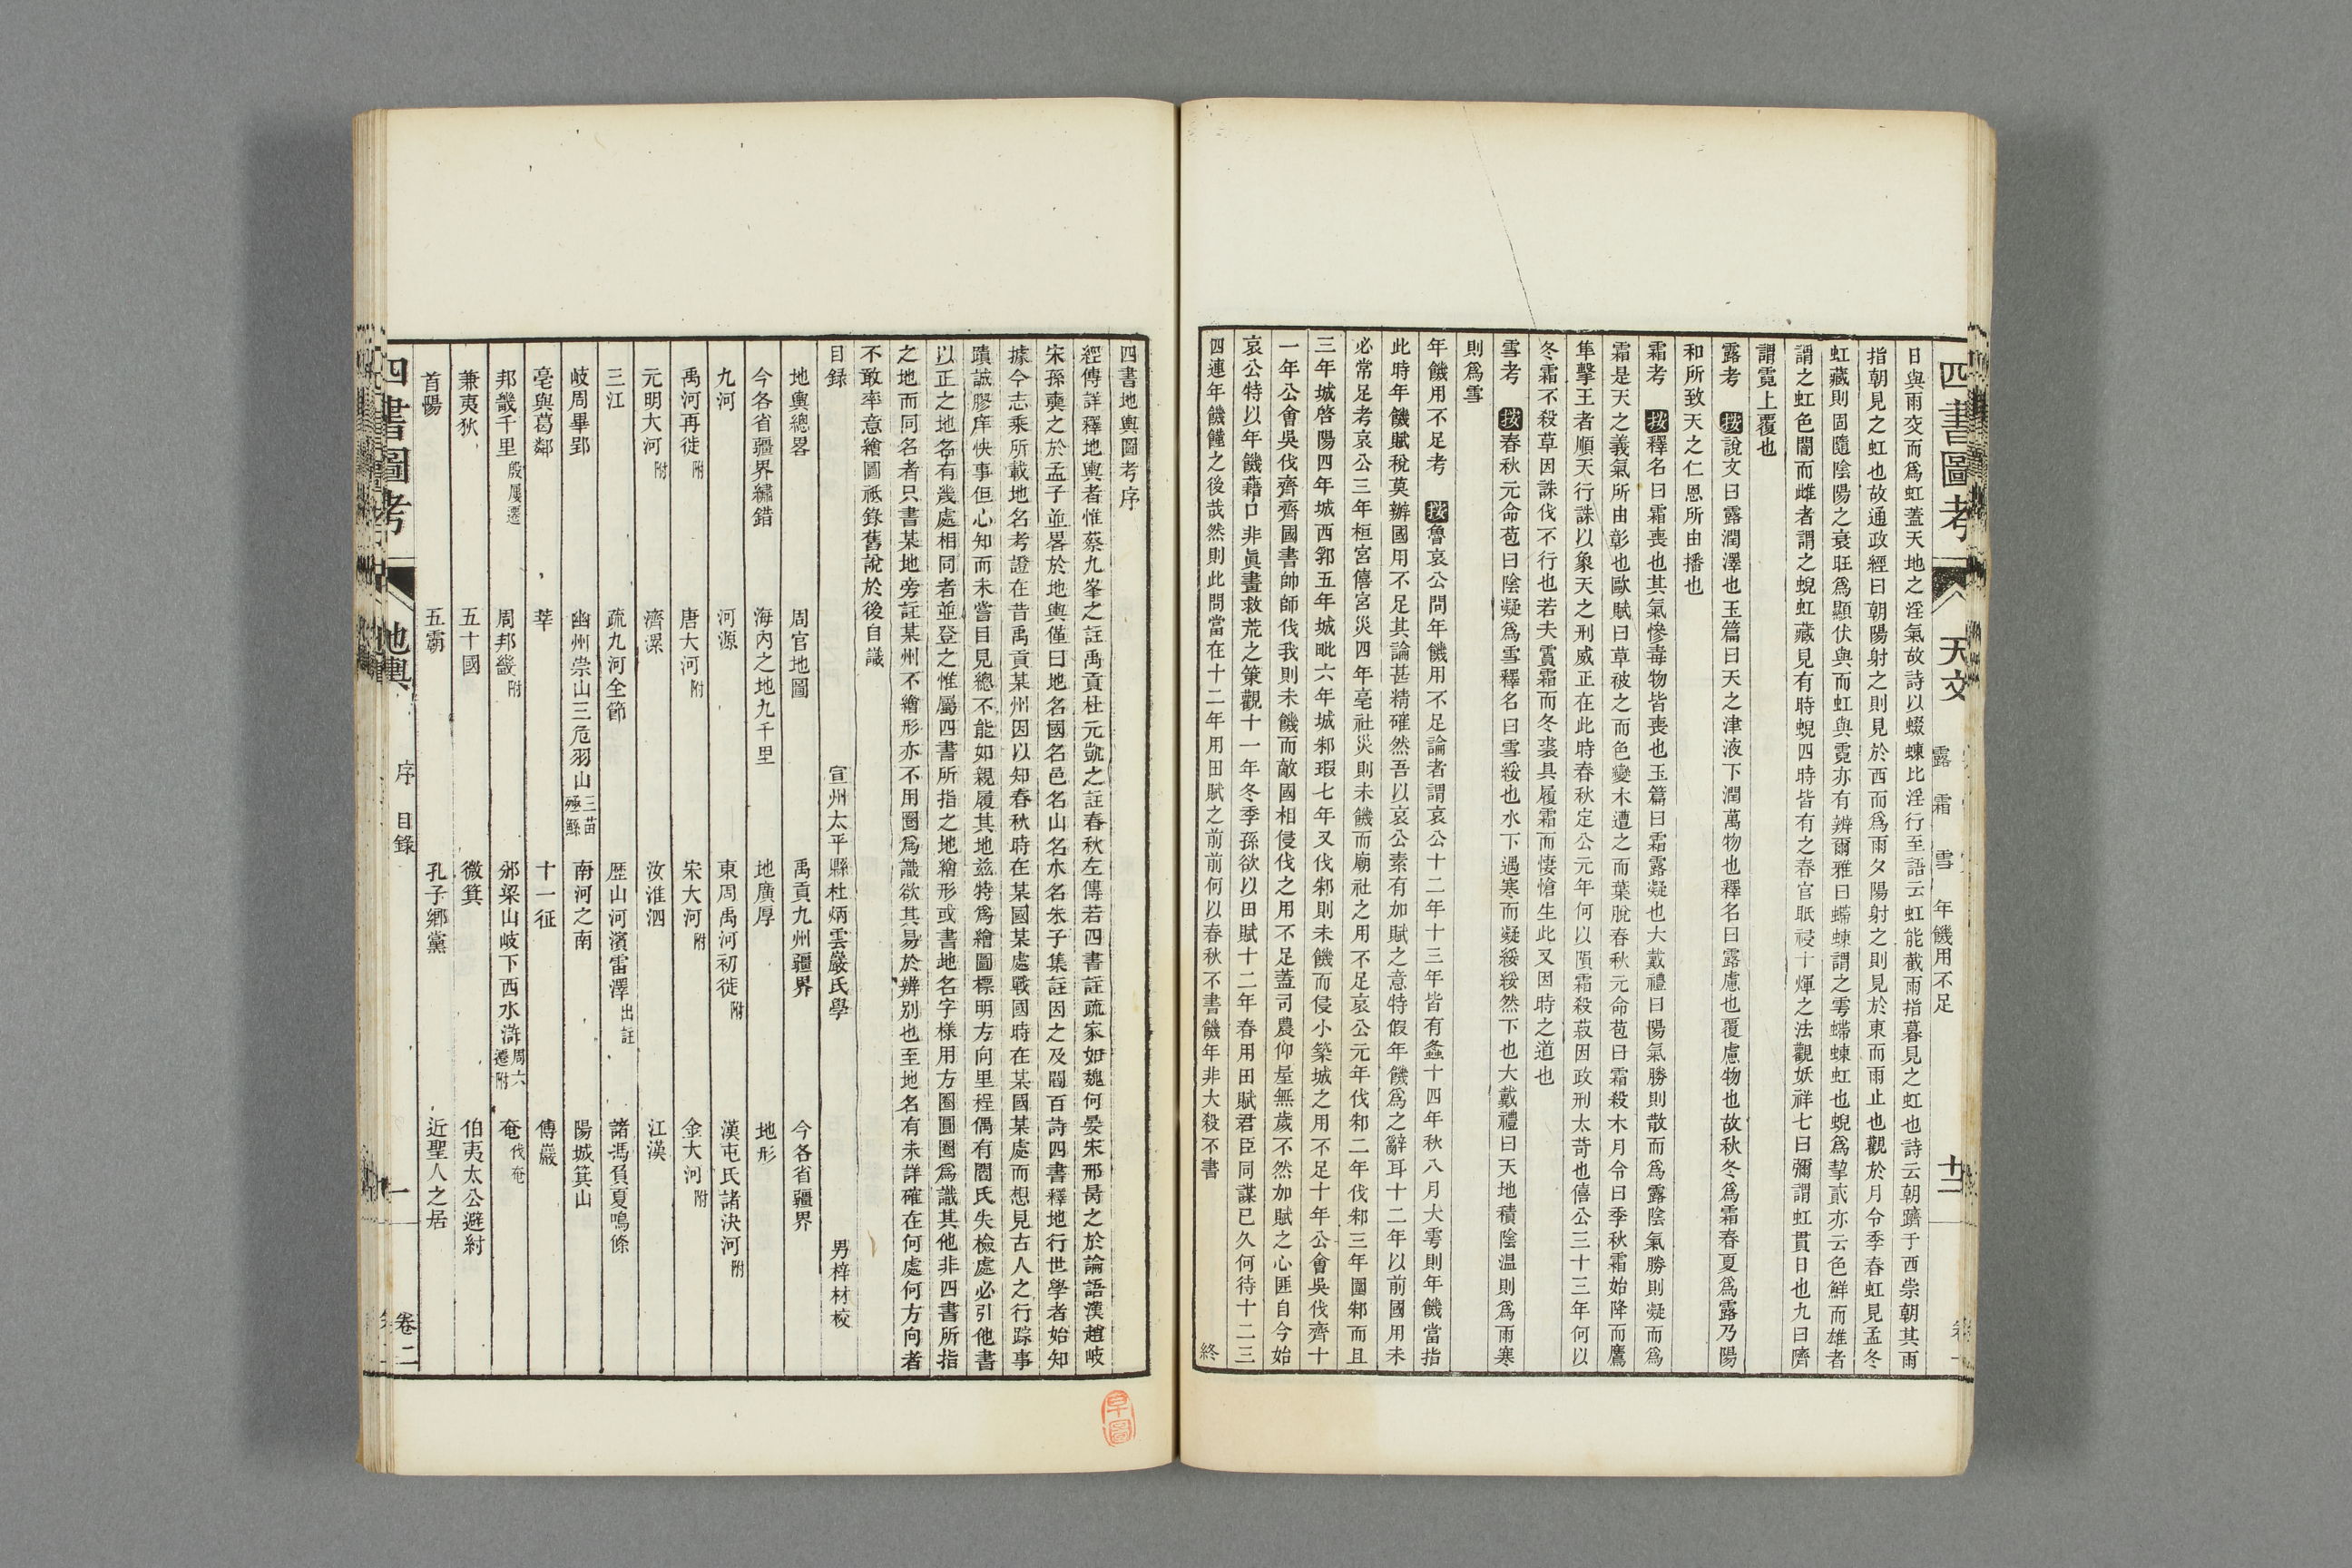 四書圖考 天文 露 霜 雪 年饑用不足 十三
日與雨交而爲虹蓋天地之淫氣故詩以蝃蝀比淫行至語云虹能截雨指暮見之虹也詩云朝隮于西崇朝其雨
指朝見之虹也故通政經曰朝陽射之則見於西而爲雨夕陽射之則見於東而雨止也觀於月令季春虹見孟冬
虹藏則固隨陰陽之衰旺爲顯伏與而虹與霓亦有辨爾雅曰螮蝀謂之雩螮蝀虹也蜺爲挈貳亦云色鮮而雄者
謂之虹色闇而雌者謂之蜺虹藏見有時蜺四時皆有之春官眡祲十煇之法觀妖祥七曰彌謂虹貫日也九曰隮
謂霓上覆也
露考 按說文曰露潤澤也玉篇曰天之津液下潤萬物也釋名曰露慮也覆慮物也故秋冬爲霜春夏爲露乃陽
和所致天之仁恩所由播也
霜考 按釋名曰霜喪也其氣慘毒物皆喪也玉篇曰霜露凝也大戴禮曰陽氣勝則散而爲露陰氣勝則凝而爲
霜是天之義氣所由彰也歐賦曰草被之而色變木遭之而葉脫春秋元命苞曰霜殺木月令曰季秋霜始降而鷹
隼擊王者順天行誅以象天之刑威正在此時春秋定公元年何以隕霜殺菽因政刑太苛也僖公三十三年何以
冬霜不殺草因誅伐不行也若夫霣霜而冬裘具履霜而悽愴生此又因時之道也
雪考 按春秋元命苞曰陰凝爲雪釋名曰雪綏也水下遇寒而凝綏綏然下也大戴禮曰天地積陰温則爲雨寒
則爲雪
年饑用不足考 按魯哀公問年饑用不足論者謂哀公十二年十三年皆有螽十四年秋八月大雩則年饑當指
此時年饑賦稅莫辦國用不足其論甚精確然吾以哀公素有加賦之意特假年饑爲之辭耳十二年以前國用未
必常足考哀公三年桓宮僖宮災四年亳社災則未饑而廟社之用不足哀公元年伐邾二年伐邾三年圍邾而且
三年城啓陽四年城西郛五年城毗六年城邾瑕七年又伐邾則未饑而侵小築城之用不足十年公會吳伐齊十
一年公會吳伐齊齊國書帥師伐我則未饑而敵國相侵伐之用不足蓋司農仰屋無歲不然加賦之心匪自今始
哀公特以年饑藉口非眞畫救荒之策觀十一年冬季孫欲以田賦十二年春用田賦君臣同謀已久何待十二三
四連年饑饉之後哉然則此問當在十二年用田賦之前前何以春秋不書饑年非大殺不書 終
四書地輿圖考序
經傳詳釋地輿者惟蔡九峯之註禹貢杜元凱之註春秋左傳若四書註疏家如魏何晏宋邢昺之於論語漢趙岐
宋孫奭之於孟子並畧於地輿僅曰地名國名邑名山名水名朱子集註因之及閻百詩四書釋地行世學者始知
據今志乘所載地名考證在昔禹貢某州因以知春秋時在某國某處戰國時在某國某處而想見古人之行踪事
蹟誠膠庠快事但心知而未嘗目見總不能如親履其地兹特爲繪圖標明方向里程偶有閻氏失檢處必引他書
以正之地名有幾處相同者並登之惟屬四書所指之地繪形或書地名字樣用方圈圓圈爲識其他非四書所指
之地而同名者只書某地旁註某州不繪形亦不用圈爲識欲其易於辨別也至地名有未詳確在何處何方向者
不敢率意繪圖祗錄舊說於後自議
目録 宣州太平縣杜炳雲巖氏學 男梓材校
地輿總畧 周官地圖 禹貢九州疆界 今各省疆界
今各省疆界繡錯 海內之地九千里 地廣厚 地形
九河 河源 東周禹河初徙附 漢屯氏諸決河附
禹河再徙附 唐大河附 宋大河附 金大河附
元明大河附 濟漯 汝淮泗 江漢
三江 疏九河全節 歷山河濱雷澤出註 諸馮負夏鳴條
岐周畢郢 幽州崇山三危羽山三苗殛鯀 南河之南 陽城箕山
亳與葛鄰 莘 十一征 傅巖
邦畿千里殷屢遷 周邦畿附 邠梁山岐下西水滸周六遷附 奄伐奄
兼夷狄 五十國 微箕 伯夷太公避紂
首陽 五霸 孔子鄉黨 近聖人之居
四書圖考 地輿 序 目錄 一 卷二